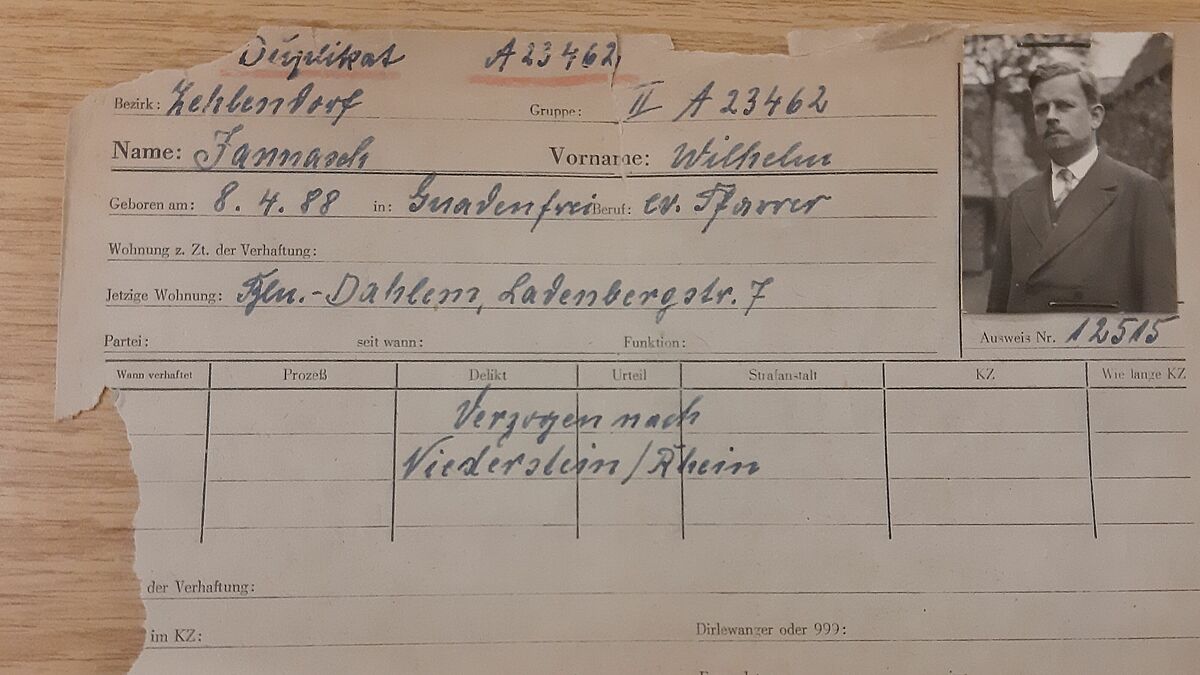 Duplikat A 23462
Bezirk: Zehlendorf Gruppe: II A 23462
Name: Jannasch Vorname: Wilhelm
Geboren am: 8. 4. 88 in: Gnadenfrei Beruf: ev. Pfarrer
Wohnung z. Zt. der Verhaftung:
Jetzige Wohnung: Bln.-Dahlem, Ladenbergstr. 7
Partei: seit wann: Funktion:
Ausweis Nr. 12515
Wann verhaftet Prozeß Delikt Urteil Strafanstalt KZ Wie lange KZ
Verzogen nach
Niederstein/Rhein
der Verhaftung:
im KZ: Dirlewanger oder 999: